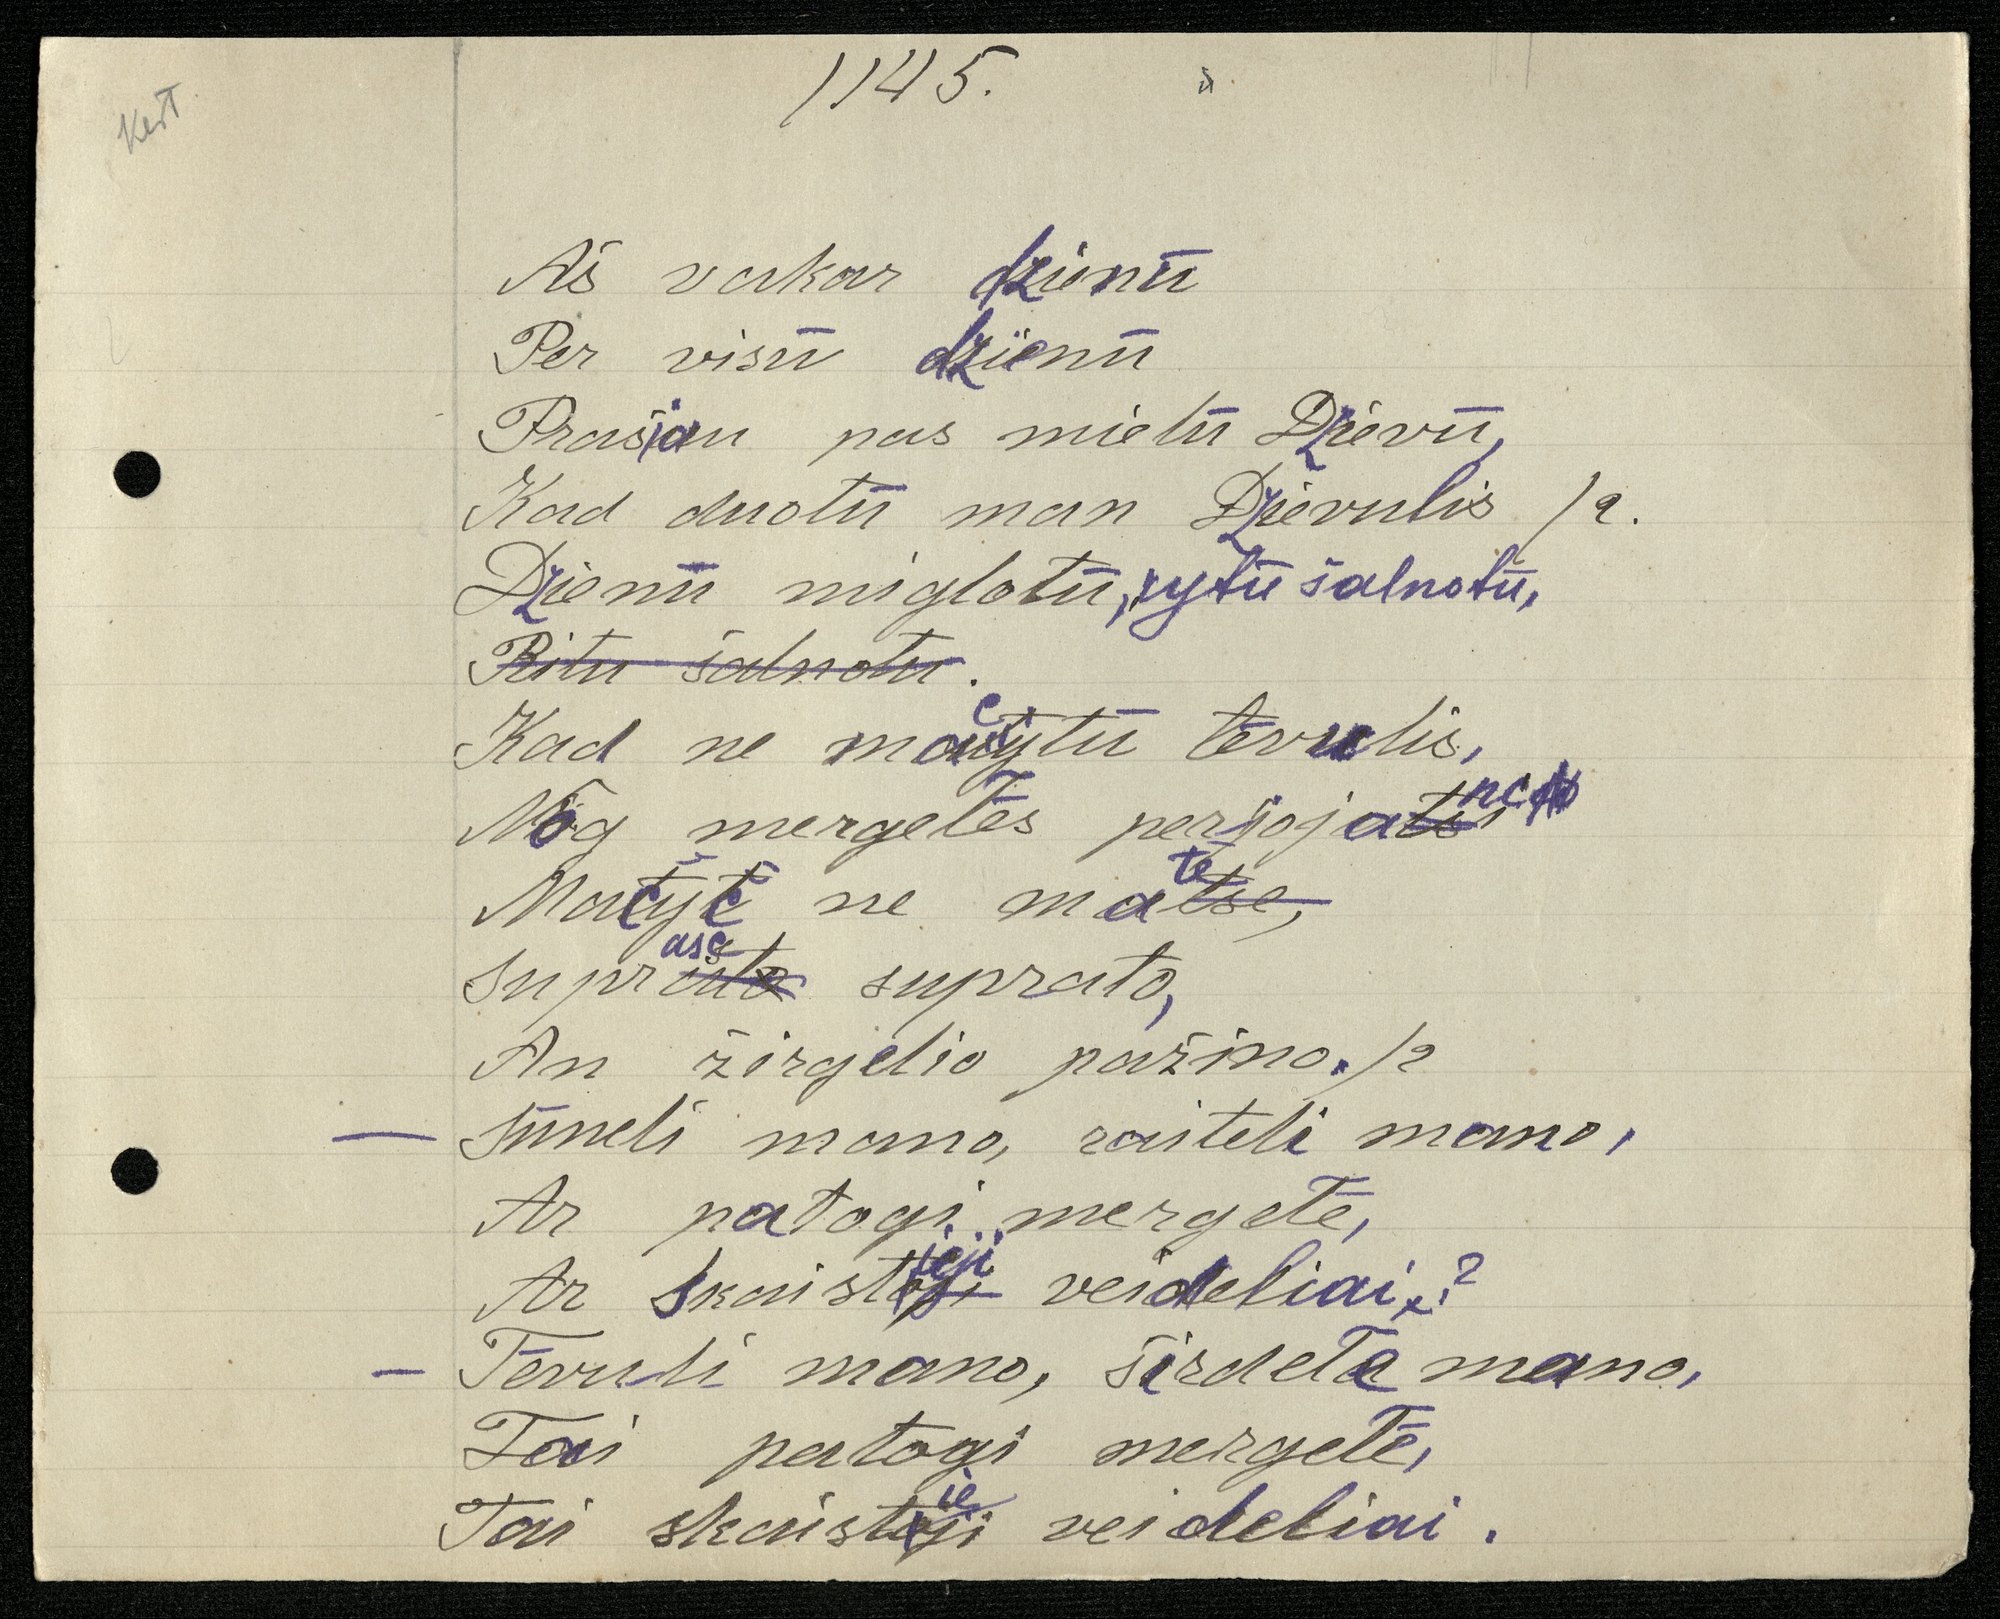 1145.
Aš vakar dzienū
Per visū dzienū
Prašiau pas mielū Dzievū,
Kad duotū man Dzievulis /2.
Dzienū miglotū, rytū šalnotū,
Ritu šalnotu.
Kad ne macytū tėvulis,
Nog mergelės parjojant
Macytė ne matė,
Suprasc suprato,
An žirgelio pažino. /2
— Sūneli mano, raiteli mano,
Ar patogi mergelė,
Ar skaistieji veideliai?
— Tėvuli mano, širdela mano,
Tai patogi mergelė,
Tai skaistieji veideliai.